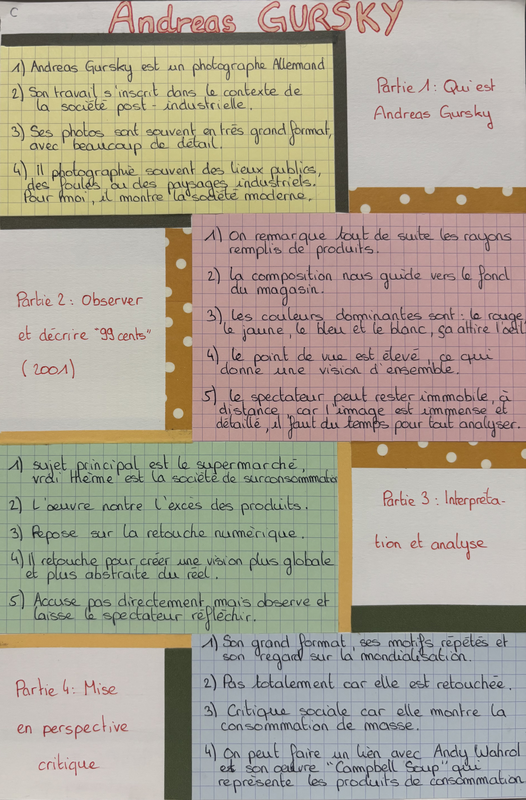 C
Andreas GURSKY
1) Andreas Gursky est un photographe Allemand
2) Son travail s'inscrit dans le contexte de
la société post-industrielle.
3) Ses photos sont souvent en très grand format,
avec beaucoup de détail.
4) Il photographie souvent des lieux publics,
des foules ou des paysages industriels.
Pour moi, il montre la société moderne.
Partie 1 : Qui est
Andreas Gursky
1) On remarque tout de suite les rayons
remplis de produits.
2) la composition nous guide vers le fond
du magasin.
3) Les couleurs dominantes sont : le rouge
le jaune, le bleu et le blanc, ça attire l'œil
4) le point de vue est élevé, ce qui
donne une vision d'ensemble.
5) le spectateur peut rester immobile, à
distance, car l'image est immense et
détaillé, il faut du temps pour tout analyser.
Partie 2 : Observer
et décrire "99 cents"
(2001)
1) sujet principal est le supermarché,
vrai thème est la société de surconsommation
2) L'oeuvre montre l'excès des produits.
3) Repose sur la retouche numérique.
4) Il retouche pour créer une vision plus globale
et plus abstraite du réel.
5) Accuse pas directement, mais observe et
laisse le spectateur réfléchir.
Partie 3 : Interpréta-
tion et analyse
1) Son grand format, ses motifs répétés et
son regard sur la mondialisation.
2) Pas totalement car elle est retouchée.
3) Critique sociale car elle montre la
consommation de masse.
4) On peut faire un lien avec Andy Wahrol
et son œuvre "Campbell Soup" qui
représente les produits de consommation
Partie 4 : Mise
en perspective
critique